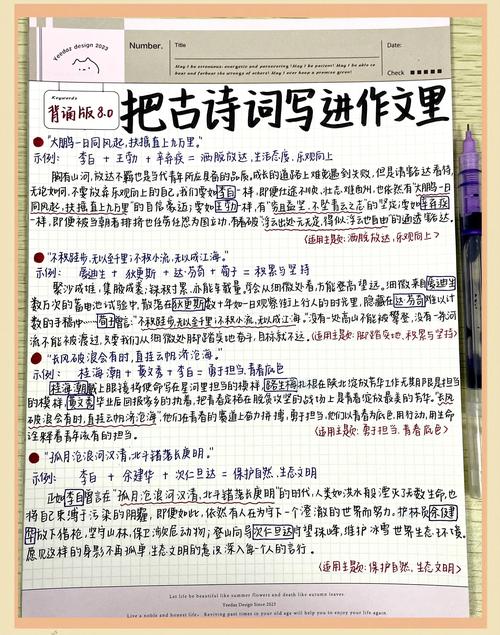 Yeedaz design 2023
Number.
Title
Date:
May I be ceremonious: energetic and persevering! May I be patient! May I be able to
bear and forbear the wrongs of others! May I ever keep a promise given!
Check
Keywords
背诵版8.0
把古诗词写进作文里
"大鹏一日同风起,扶摇直上九万里。"
示例: 李白 + 王勃 + 辛弃疾 = 洒脱放达,生活态度,乐观向上
胸有山河,放达不羁也是当代青年所应具备的品质,成长的道路上难免遇到失败,但是请豁达看待,
无论如何,不要放弃乐观向上的自己。我们要如李白一样,即便仕途不顺,壮志难酬,也依然有"大鹏一日
同风起,扶摇直上九万里"的自信豪迈;要如王勃一样,有"穷且益坚,不坠青云之志"的坚定;要如辛弃疾
一样,即便被当朝者排挤也待任您为国主动,有看破"浮云出处元无定,得似浮云也自由"的通透豁达。
(适用主题:洒脱放达,乐观向上)
"不积跬步,无以至千里;不积小流,无以成江海。"
示例: 屠迪生 + 狄更斯 + 达·芬奇 + 荀子 = 积累与坚持
聚沙成堆,集腋成裘;
数万次的蓄电池试验中,散落在狄更斯数十年如一日观察街上行人的时光里,隐藏在达·芬奇难以计
数的手稿中……荀子曾言:"不积跬步,无以至千里;不积小流,无以成江海。"没有一处高山不能被攀登,没有一条河
流不能被渡过,只要我们从细微处脚踏实地奋斗,目标就不远。(适用主题:脚踏实地,积累与坚持)
"长风破浪会有时,直挂云帆济沧海。"
示例: 桂海潮 + 黄文秀 + 李白 = 勇于担当,青春底色
桂海潮戴上眼镜将使命写在星河里担当的模样,路生梅扎根在陕北绽放芳华工作无期即是担当
的模样,黄文秀毕业后回报家乡的执着,把青春定格在脱贫攻坚的战场上是青春绽放最美的芳华。"长风
破浪会有时,直挂云帆济沧海",他们在青春的赛道上奋力拼搏,勇于担当。他们以青春为底色,用行动,用生命
诠释着青年该有的担当。
(适用主题:勇于担当,青春底色)
"孤月沧浪河汉清,北斗错落长庚明。"
示例: 李白 + 余建华 + 次仁旦达 = 保护自然,生态文明
正如李白曾言在"孤月沧浪河汉清,北斗错落长庚明"的时代,人类如洪水般湮灭了无数生命,也
将自己束缚于污染的阴霾,即便如此,依然有人在为守下一个澄澈的世界而努力。护林员余建
华放下猎枪,坚守山林,保卫濒危动物;登山向导次仁旦达守望珠峰,维护冰雪世界生态环境。
愿见这样的身影不再孤单,生态文明的意识深入每个人的言行。
(适用主题:保护自然,生态文明)
Let life be beautiful like summer flowers and death like autumn leaves.
Yeedaz Design Since 2023
Live a noble and honest life. Reviving past times in your old age will help you to enjoy your life again.